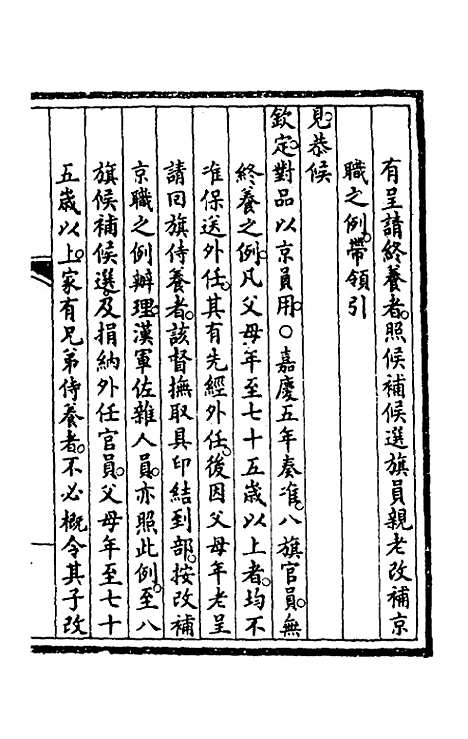 有呈請終養者。照候補候選旗員親老改補京
職之例。帶領引
見。恭候
欽定。對品以京員用。〇嘉慶五年奏准。八旗官員。無
終養之例。凡父母年至七十五歲以上者。均不
准保送外任。其有先經外任。後因父母年老呈
請回旗侍養者。該督撫取具印結到部。按改補
京職之例辦理。漢軍佐雜人員。亦照此例。至八
旗候補候選。及捐納外任官員。父母年至七十
五歲以上。家有兄弟侍養者。不必概令其子改